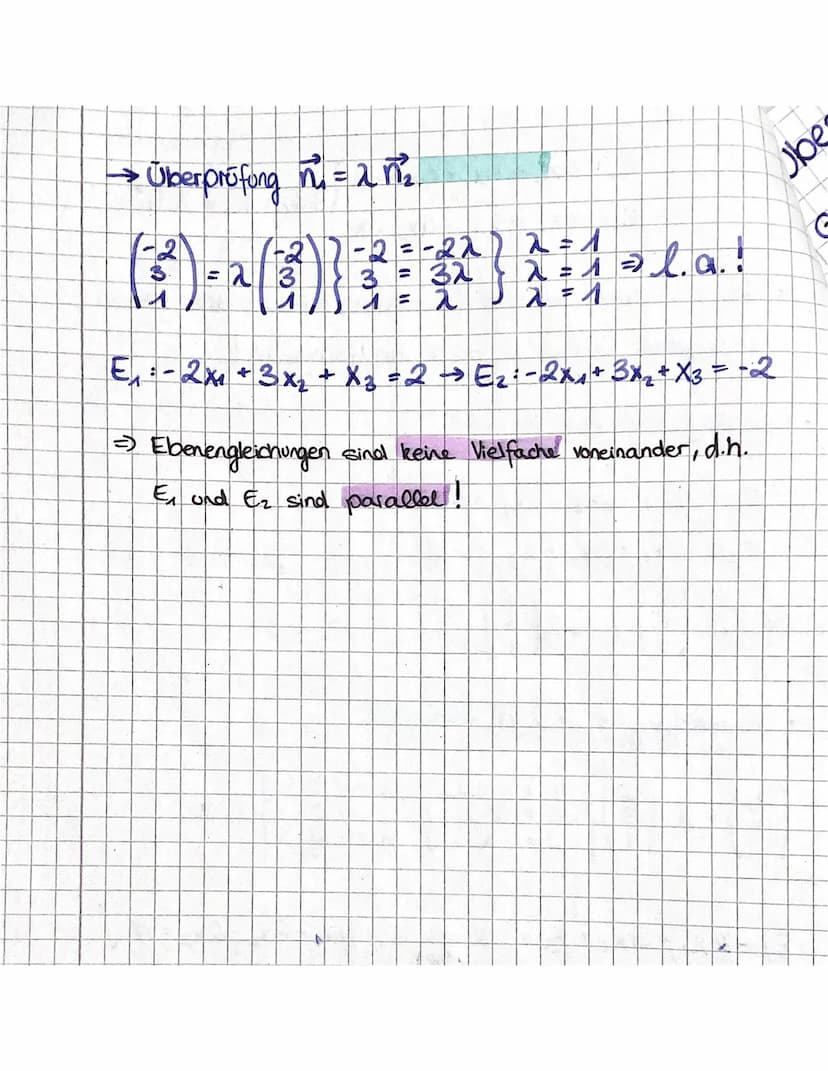 → Überprüfung n⃗₁ = λ n⃗₂
(-2 3 1) = λ (-2 3 1) } -2 = -2λ 3 = 3λ 1 = λ } λ = 1 λ = 1 λ = 1 ⇒ l.a.!
E₁: -2x₁ + 3x₂ + x₃ = 2 → E₂: -2x₁ + 3x₂ + x₃ = -2
⇒ Ebenengleichungen sind keine Vielfache voneinander, d.h.
E₁ und E₂ sind parallel!